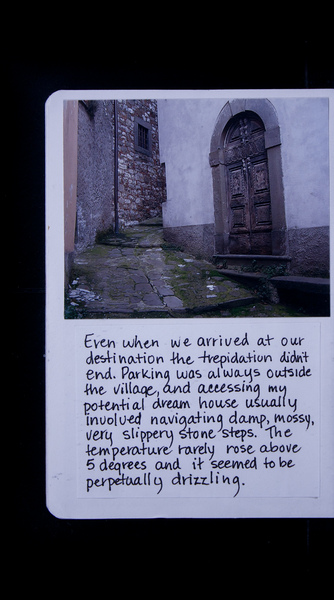 Even when we arrived at our
destination the trepidation didn't
end. Parking was always outside
the village, and accessing my
potential dream house usually
involved navigating damp, mossy,
very slippery stone steps. The
temperature rarely rose above
5 degrees and it seemed to be
perpetually drizzling.